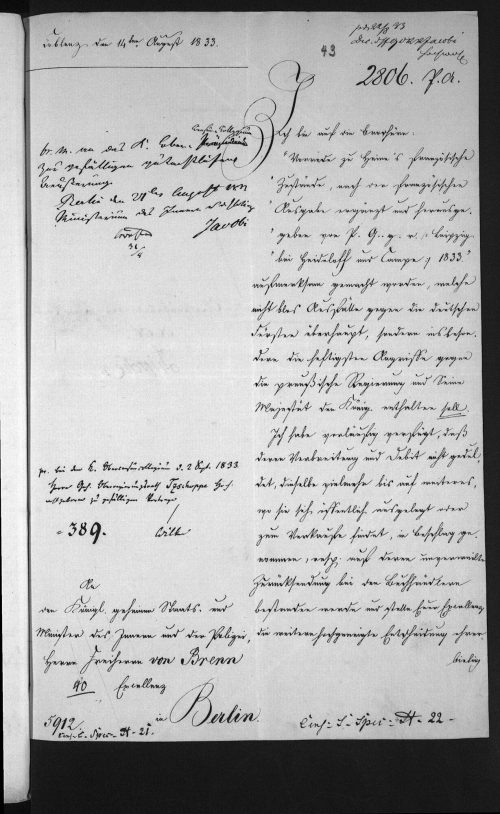 Coblenz, den 14ten August 1833.
43
2806. P. A.
Ich bin auf die Broschüre:
"Vorrede zu Heine's französische
Zustände, nach der französischen
Ausgabe ergänzt und herausge-
geben von P. G. g. r. Leipzig
bei Heideloff und Campe 1833"
aufmerksam gemacht worden, welche
nicht blos Ausfälle gegen die deutschen
Fürsten überhaupt, sondern insbeson-
dere die heftigsten Angriffe gegen
die preußische Regierung und Seine
Majestät den König enthalten soll.
Ich habe vorläufig verfügt, daß
deren Verbreitung und Debit nicht gedul-
det, dieselbe vielmehr bis auf weiteres,
wo sie sich öffentlich ausgelegt oder
zum Verkaufe findet, in Beschlag ge-
nommen, resp. auf deren unverweilte
Zurücksendung bei den Buchhändlern
bestanden werde und stelle Euer Excellenz
die weitere hochgeneigte Entscheidung
br. m. an das K. Ober-Censur-Collegium
zur gefälligen
Aeusserung.
Berlin den 21ten August 1833
Ministerium des Innern und der Polizei
Jacobi
31/8
pr. bei dem K. Obercensurcollegium d. 2 Sept. 1833
Herrn Geh. Oberregierungsrath Tzschoppe
389.
An
den Königl. geheimen Staats- und
Minister des Innern und der Polizei,
Herrn Freiherrn von Brenn
40 Excellenz
in Berlin.
5912.
Cens-S.-Spec-H-21
Cens-S-Spec-H-22-